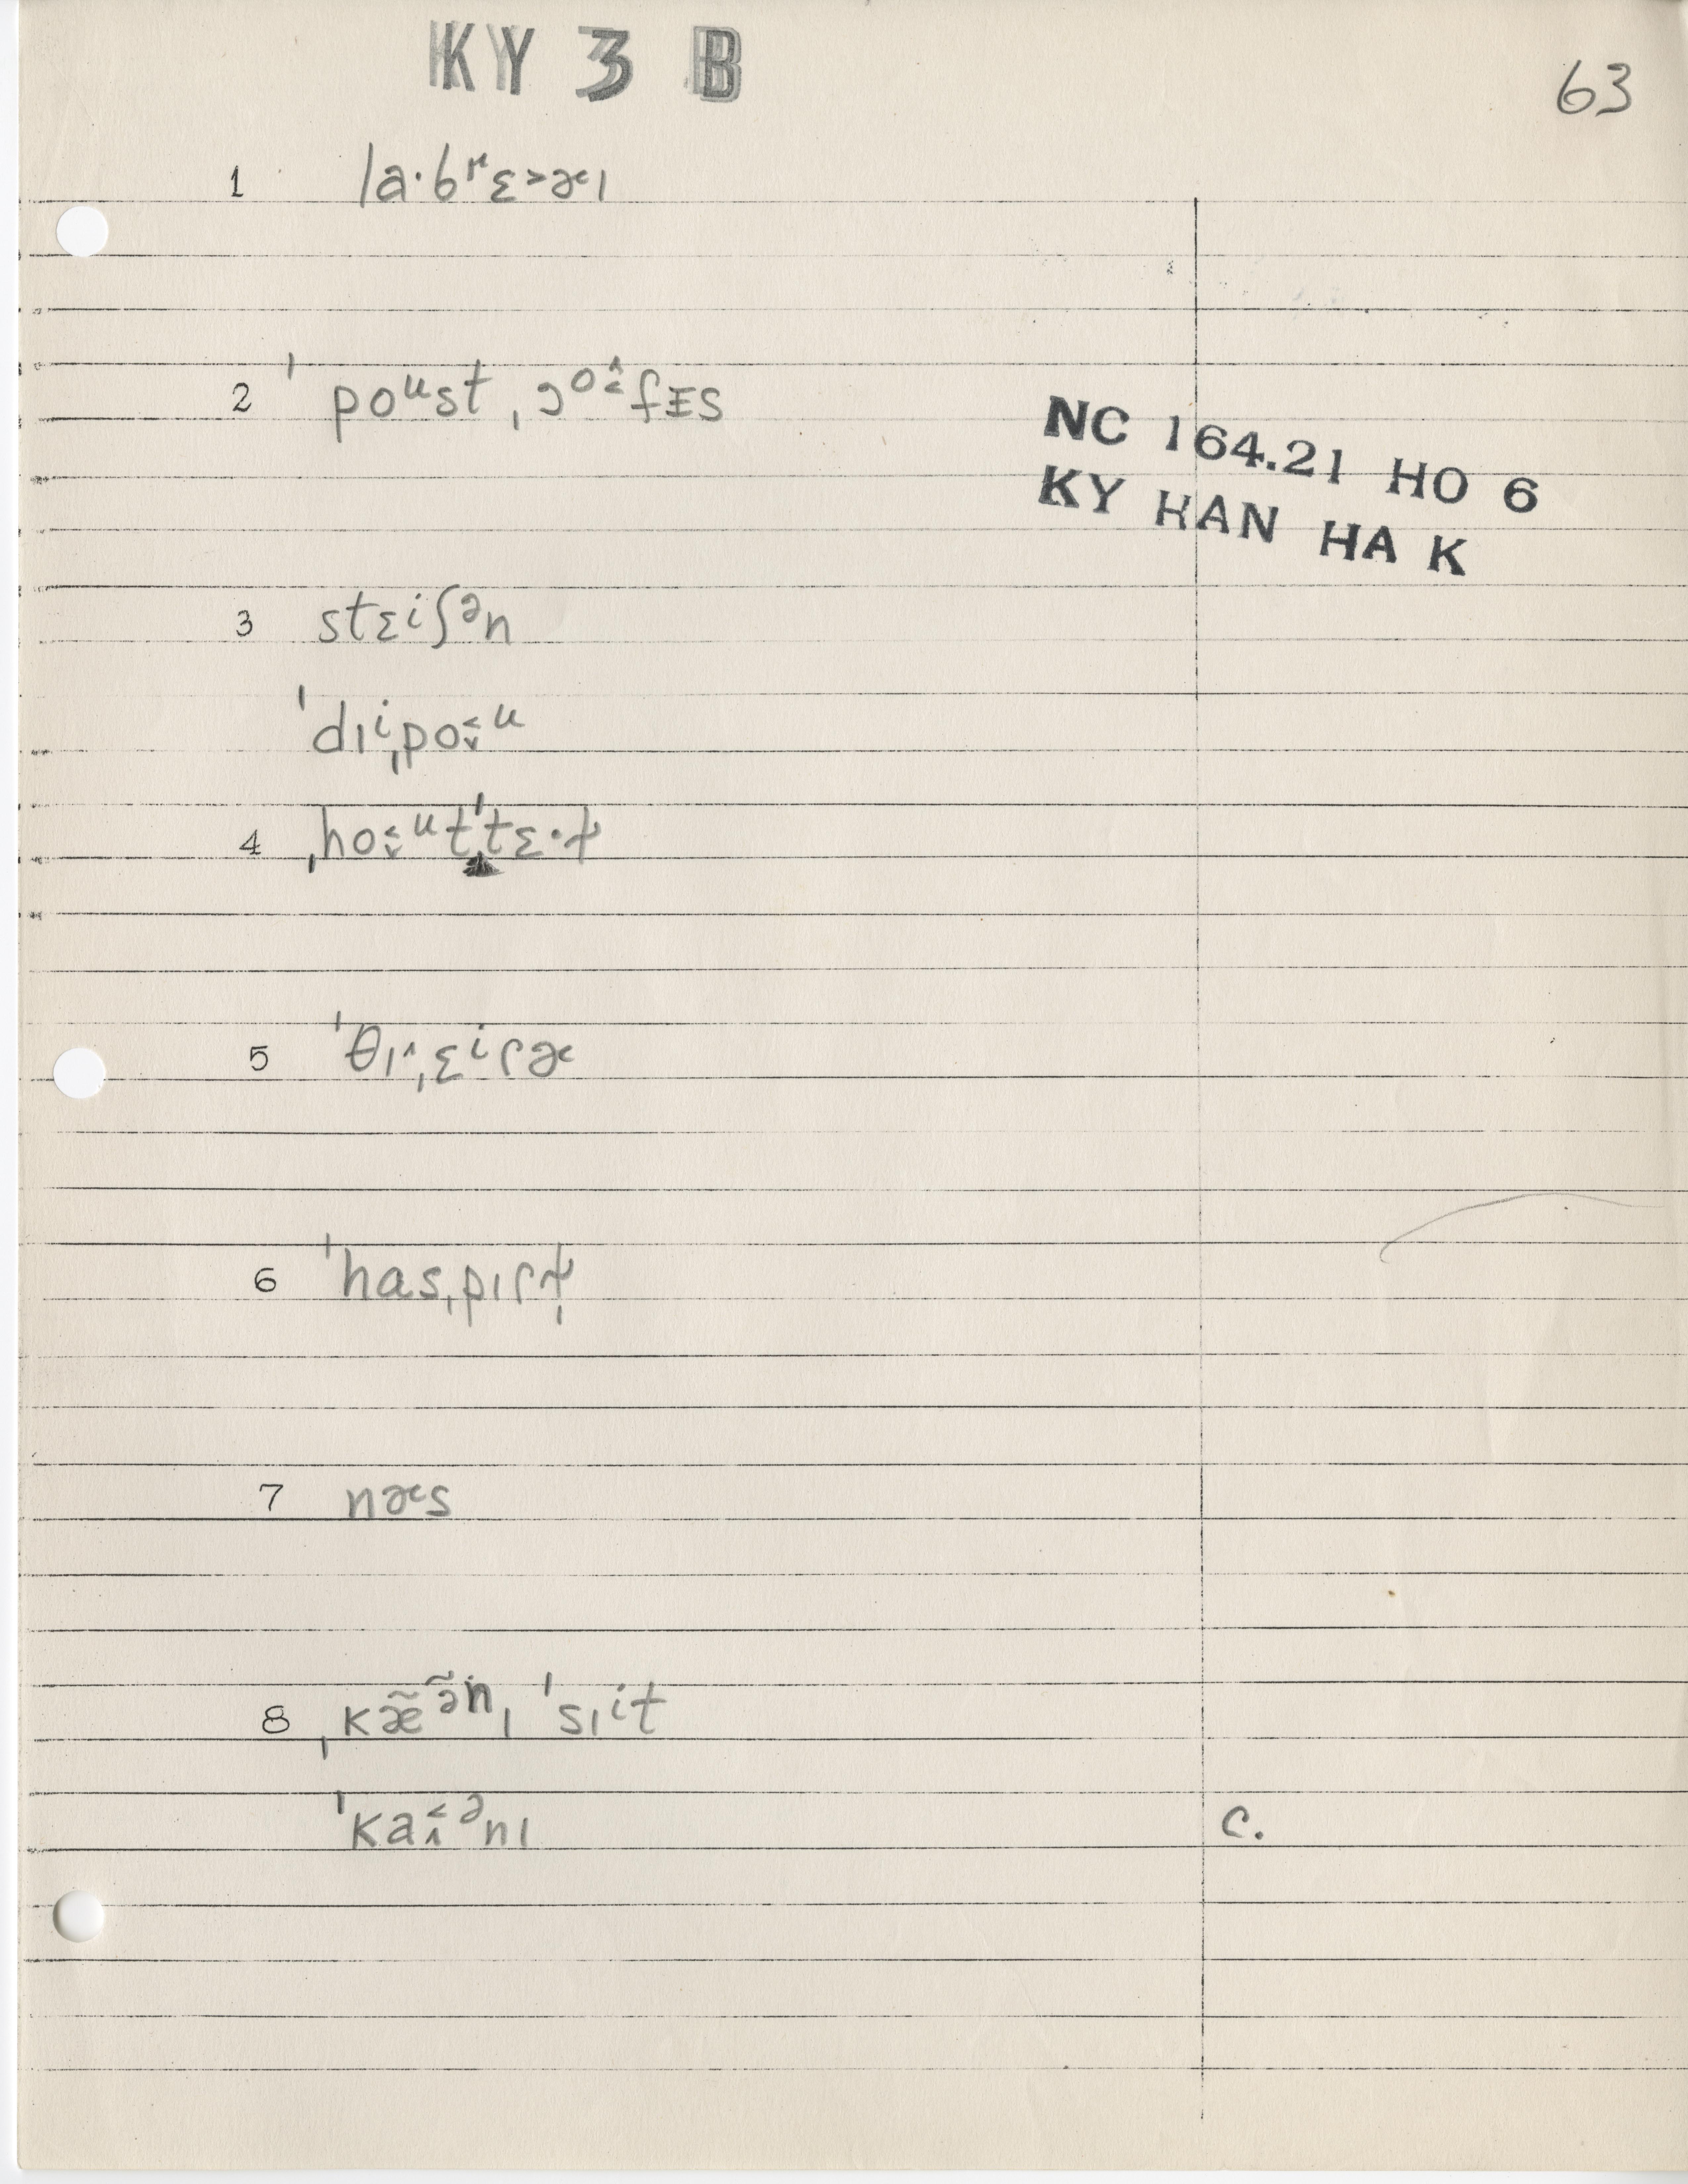 KY 3 B
63
1 laˑbʳɛ˃ɚɪ
2 ˈpoᵘst ˌɔᵒ̂˂fɪs
NC 164.21 HO 6
KY HAN HA K
3 stɛⁱʃᵊn
ˈdɪⁱˌpo˂˅ᵘ
4 ˌho˂˅ᵘtˈtɛˑɫ
5 ˈθɪʳˌɛⁱɾɚ
6 ˈhasˌpɪɾɫ̩
7 nɚs
8 ˌkæ̃ᵊ̃ⁿɪ ˈsɪⁱt
ˈka˂˄ᵊnɪ c.